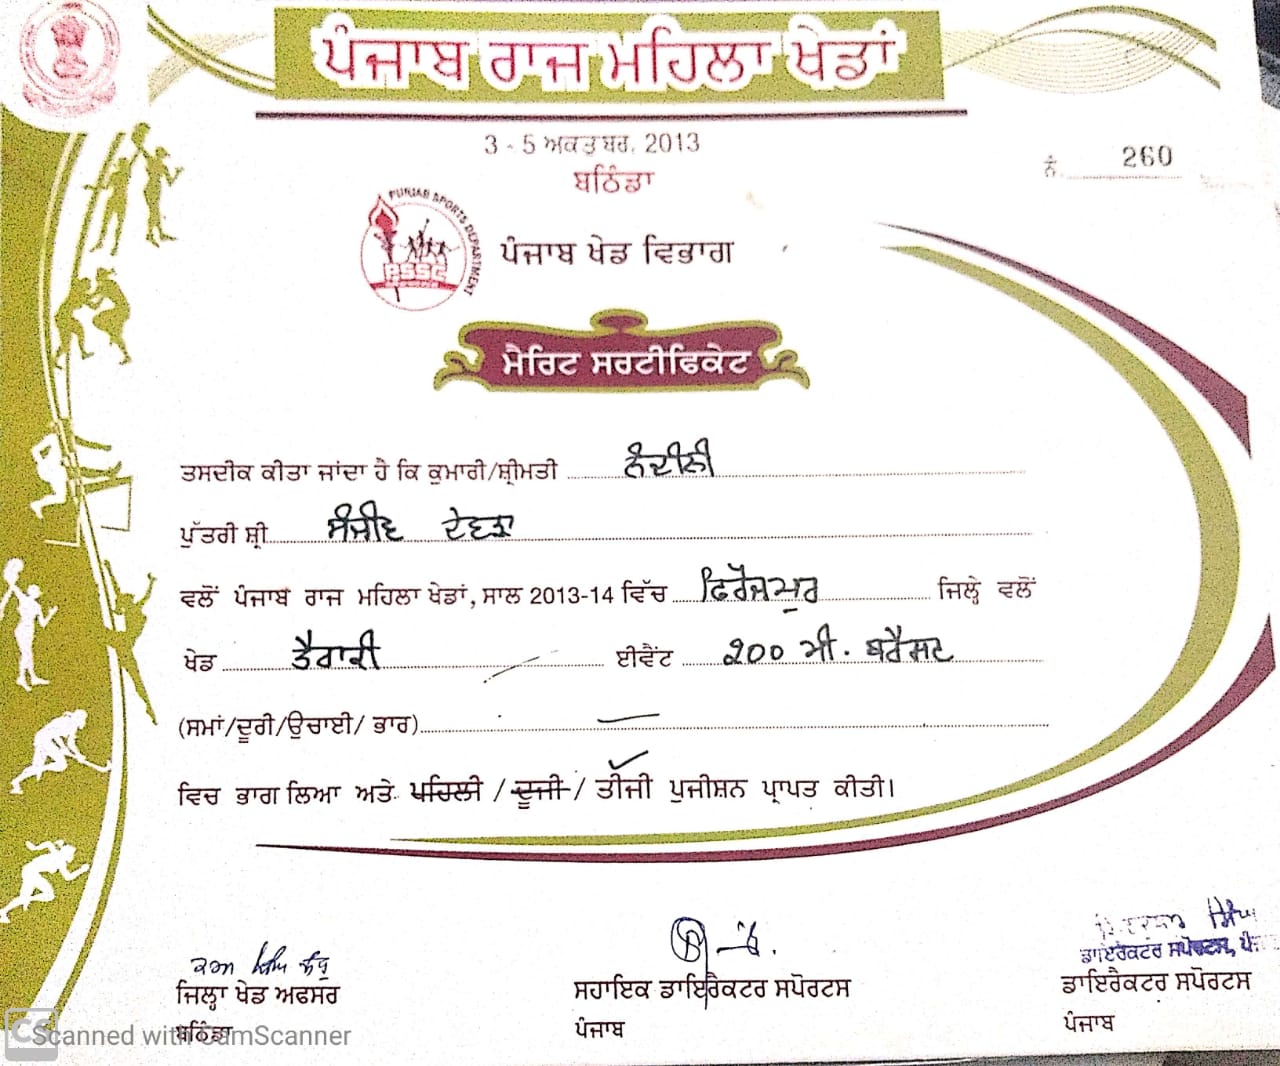 ਪੰਜਾਬ ਰਾਜ ਮਹਿਲਾ ਖੇਡਾਂ
3 - 5 ਅਕਤੂਬਰ, 2013
ਬਠਿੰਡਾ
ਨੰ. 260
PUNJAB SPORTS DEPARTMENT
PSSC
ਪੰਜਾਬ ਖੇਡ ਵਿਭਾਗ
ਮੈਰਿਟ ਸਰਟੀਫਿਕੇਟ
ਤਸਦੀਕ ਕੀਤਾ ਜਾਂਦਾ ਹੈ ਕਿ ਕੁਮਾਰੀ/ਸ਼੍ਰੀਮਤੀ ਨੰਦੀਨੀ
ਪੁੱਤਰੀ ਸ਼੍ਰੀ ਸੰਜੀਵ ਦੇਵੜਾ
ਵਲੋਂ ਪੰਜਾਬ ਰਾਜ ਮਹਿਲਾ ਖੇਡਾਂ, ਸਾਲ 2013-14 ਵਿੱਚ ਫਿਰੋਜਪੁਰ ਜਿਲ੍ਹੇ ਵਲੋਂ
ਖੇਡ ਤੈਰਾਕੀ ਈਵੈਂਟ 200 ਮੀ. ਬਰੈਸਟ
(ਸਮਾਂ/ਦੂਰੀ/ਉਚਾਈ/ ਭਾਰ)
ਵਿਚ ਭਾਗ ਲਿਆ ਅਤੇ ਪਹਿਲੀ / ਦੂਜੀ / ਤੀਜੀ ਪੁਜੀਸ਼ਨ ਪ੍ਰਾਪਤ ਕੀਤੀ।
ਸਿੰਘ
ਡਾਇਰੈਕਟਰ ਸਪੋਰਟਸ,
ਜਿਲ੍ਹਾ ਖੇਡ ਅਫਸਰ ਸਹਾਇਕ ਡਾਇਰੈਕਟਰ ਸਪੋਰਟਸ ਡਾਇਰੈਕਟਰ ਸਪੋਰਟਸ
ਬਠਿੰਡਾ ਪੰਜਾਬ ਪੰਜਾਬ
CS Scanned with CamScanner